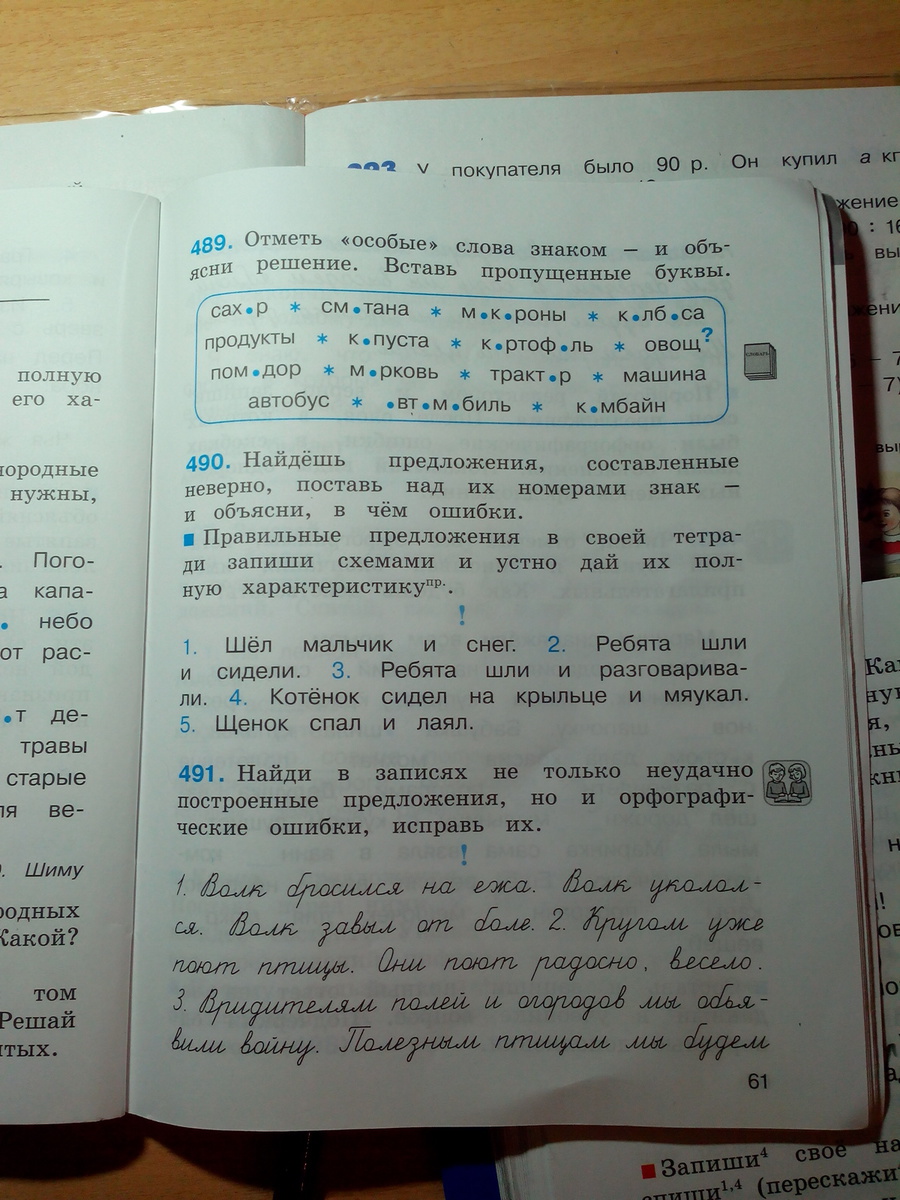 У покупателя было 90 р. Он купил а кг
489. Отметь «особые» слова знаком – и объ-
ясни решение. Вставь пропущенные буквы.
сах•р * см•тана * м•к•роны * к•лб•са
продукты * к•пуста * к•ртоф•ль * овощ?
пом•дор * м•рковь * тракт•р * машина
автобус * •вт•м•биль * к•мбайн
490. Найдёшь предложения, составленные
неверно, поставь над их номерами знак –
и объясни, в чём ошибки.
Правильные предложения в своей тетра-
ди запиши схемами и устно дай их пол-
ную характеристику пр.
!
1. Шёл мальчик и снег. 2. Ребята шли
и сидели. 3. Ребята шли и разговарива-
ли. 4. Котёнок сидел на крыльце и мяукал.
5. Щенок спал и лаял.
491. Найди в записях не только неудачно
построенные предложения, но и орфографи-
ческие ошибки, исправь их.
!
1. Волк бросился на ежа. Волк уколол-
ся. Волк завыл от боле. 2. Кругом уже
поют птицы. Они поют радосно, весело.
3. Вридителям полей и огородов мы обья-
вили войну. Полезным птицам мы будем
61
полную
его ха-
нужны,
Пого-
капа-
небо
от рас-
•т де-
травы
старые
ве-
Шиму
Какой?
том
Решай
Запиши⁴ своё на
(перескажи